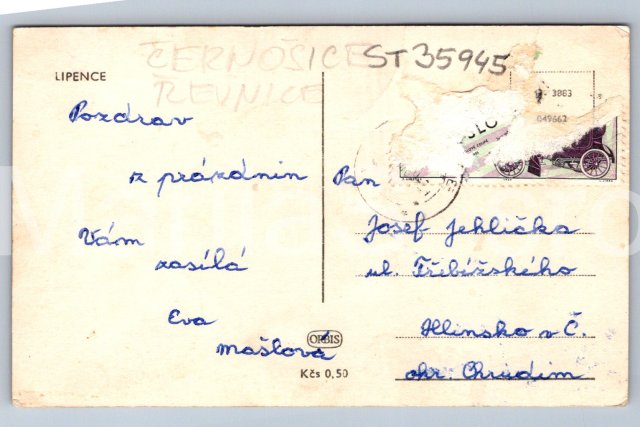 ČERNOŠICE
ŘEVNICE
ST 35945
LIPENCE
3883
049662
Pozdrav
z prázdnin
Vám
zasílá
Eva
Mašlová
Pan
Josef Jehlička
ul. Třebízského
Hlinsko v Č.
okr. Chrudim
ORBIS
Kčs 0,50